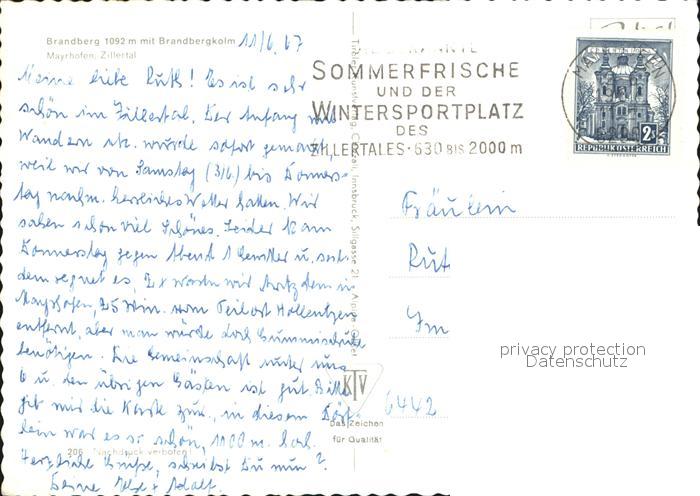 Brandberg 1092 m mit Brandbergkolm 11/6. 67
Mayrhofen, Zillertal
Meine liebe Ruth! Es ist sehr
schön im Zillertal. Der Anfang mit
Wandern usw. wurde sofort gemacht,
weil wir von Samstag (3/6.) bis Donners-
tag nachm. herrliches Wetter hatten. Wir
sahen schon viel Schönes. Leider kam
Donnerstag gegen Abend 1 Gewitter u. seit-
dem regnet es, 2x waren wir trotzdem in
Mayrhofen, 25 Min. vom Teilort Hollenzen
entfernt, aber man würde doch Gummischuhe
benötigen. Die Gemeinschaft unter uns
6 u. den übrigen Gästen ist gut. Bitte
gib mir die Karte zur., in diesem Dörf-
lein war es so schön, 1100 m. hoch.
Herzliche Grüße, schreibst Du nun?
Deine Ilse + Adolf.
206 Nachdruck verboten!
Tiroler Kunstverlag Chizzali, Innsbruck, Sillgasse 21
SOMMERFRISCHE
UND DER
WINTERSPORTPLATZ
DES
ZILLERTALES · 630 BIS 2000 m
2 S
REPUBLIK ÖSTERREICH
Fräulein
Rut
Im
6442
KTV
Das Zeichen
für Qualität
privacy protection
Datenschutz